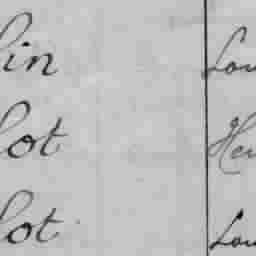 lin Lou
lot Hen
lot Lou